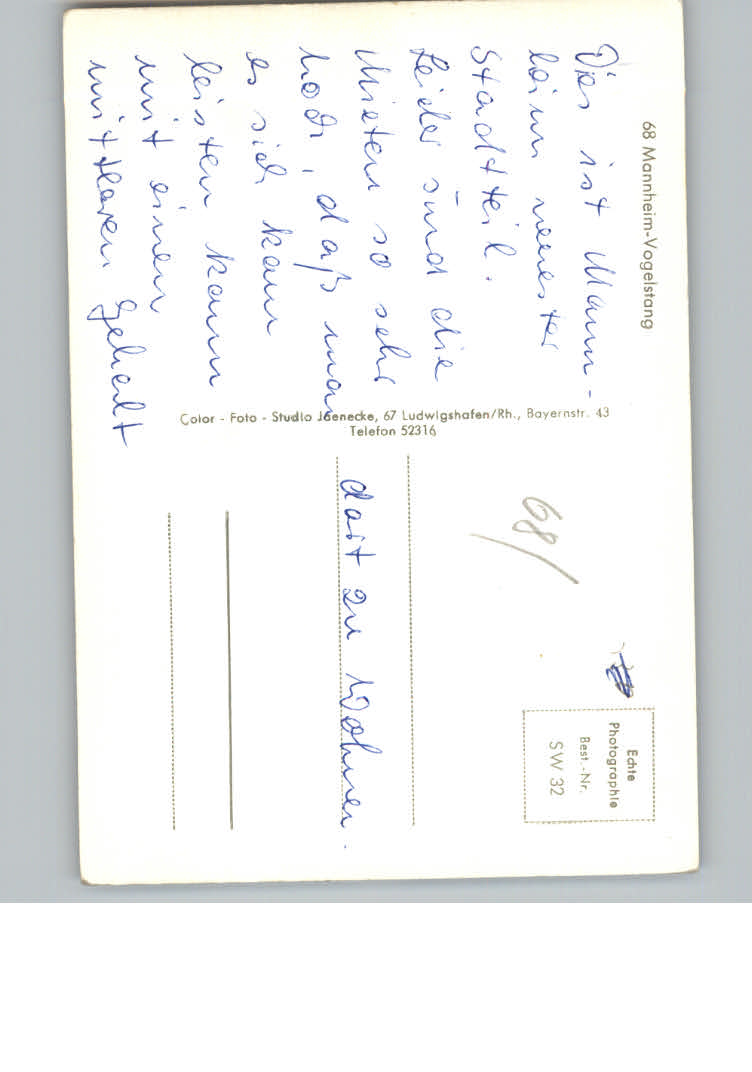 68 Mannheim-Vogelstang
Dies ist Mann-
heims neuester
Stadtteil.
Leider sind die
Mieten so sehr
hoch, daß man
es sich kaum
leisten kann
mit einem
mittleren Gehalt
dort zu wohnen.
Color - Foto - Studio Jaenecke, 67 Ludwigshafen/Rh., Bayernstr. 43
Telefon 52316
68/
Echte
Photographie
Best.-Nr.
SW 32